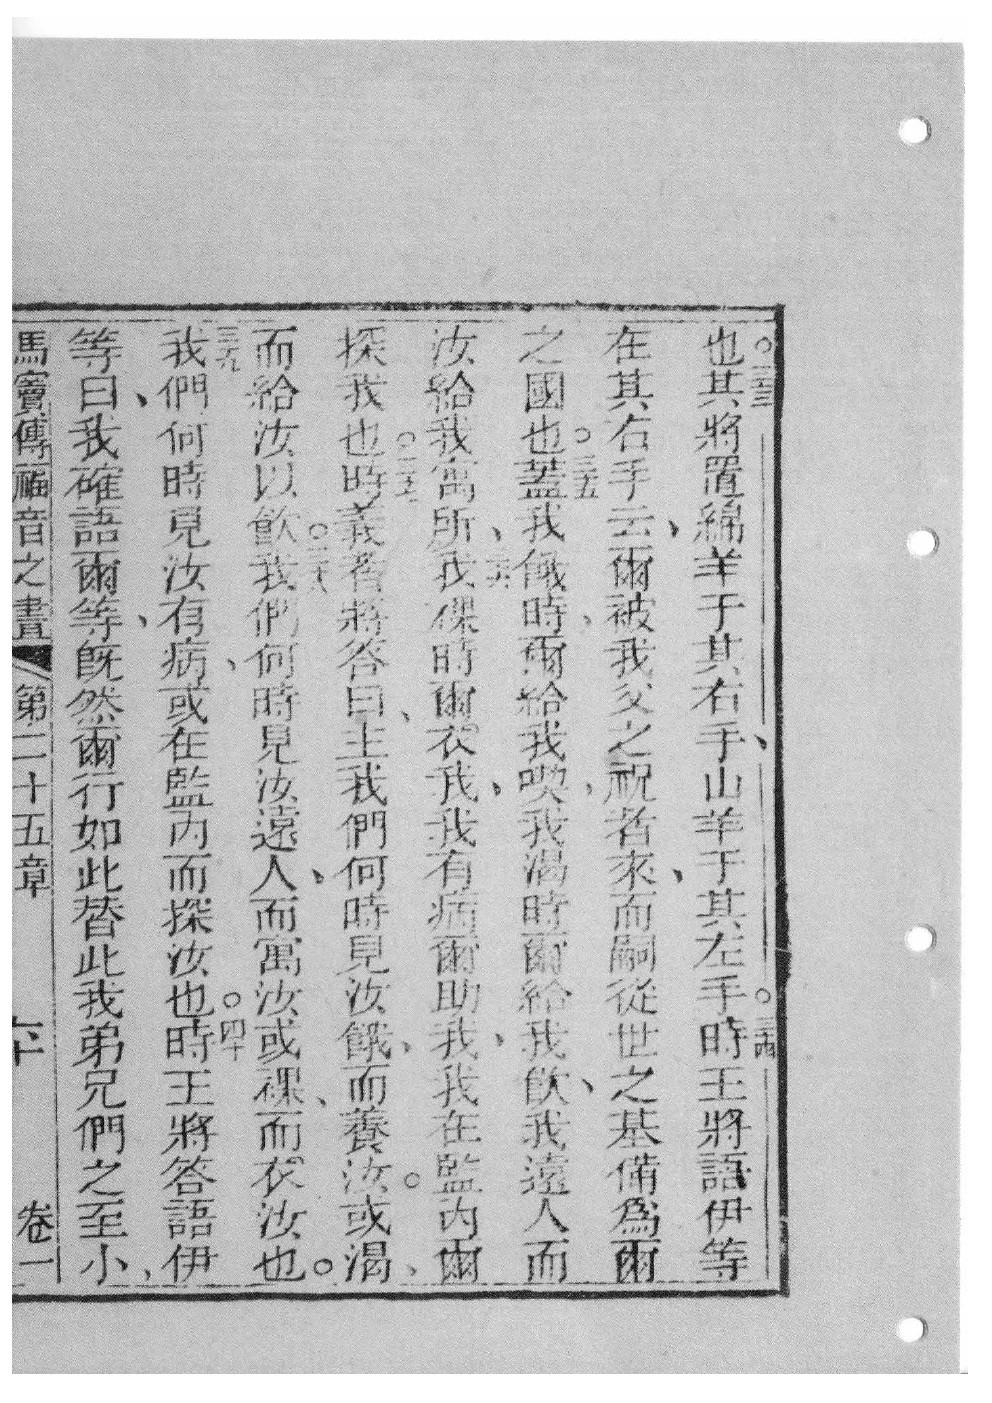 也○三三其將置綿羊于其右手、山羊于其左手○三四時王將語伊等
在其右手云、爾被我父之祝者來、而嗣從世之基備爲爾
之國也○三五蓋我餓時、爾給我喫、我渴時爾給我飲、我遠人而
汝給我寓所、三六我裸時爾衣我、我有病爾助我、我在監內爾
探我也○三七時義者將答曰、主我們何時見汝餓、而養汝○或渴、
而給汝以飲○三八我們何時見汝遠人、而寓汝或裸、而衣汝也○
三九我們何時見汝有病、或在監內而探汝也○四十時王將答語伊
等曰、我確語爾等、旣然爾行如此替此我弟兄們之至小、
馬竇傳福音之書 第二十五章 六十 卷一